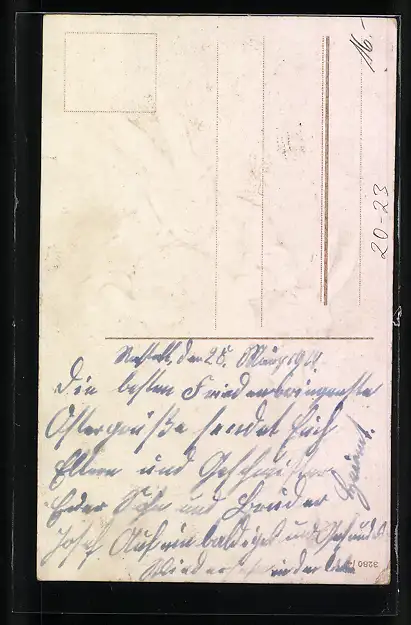 16.-
20-23
Rastatt, den 28. März 191
Die besten Friedenbringenste
Ostergrüße sendet Euch
Eltern und Geschwister
Euer Sohn und Bruder
Josef. Auf ein baldiges und Gesundes
Wiedersehen in der
Heimat.
3280/